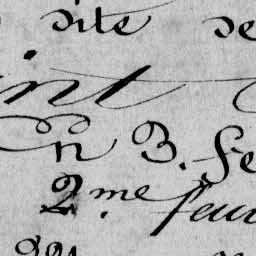 dite de
int
En 3. fe
2.me feui